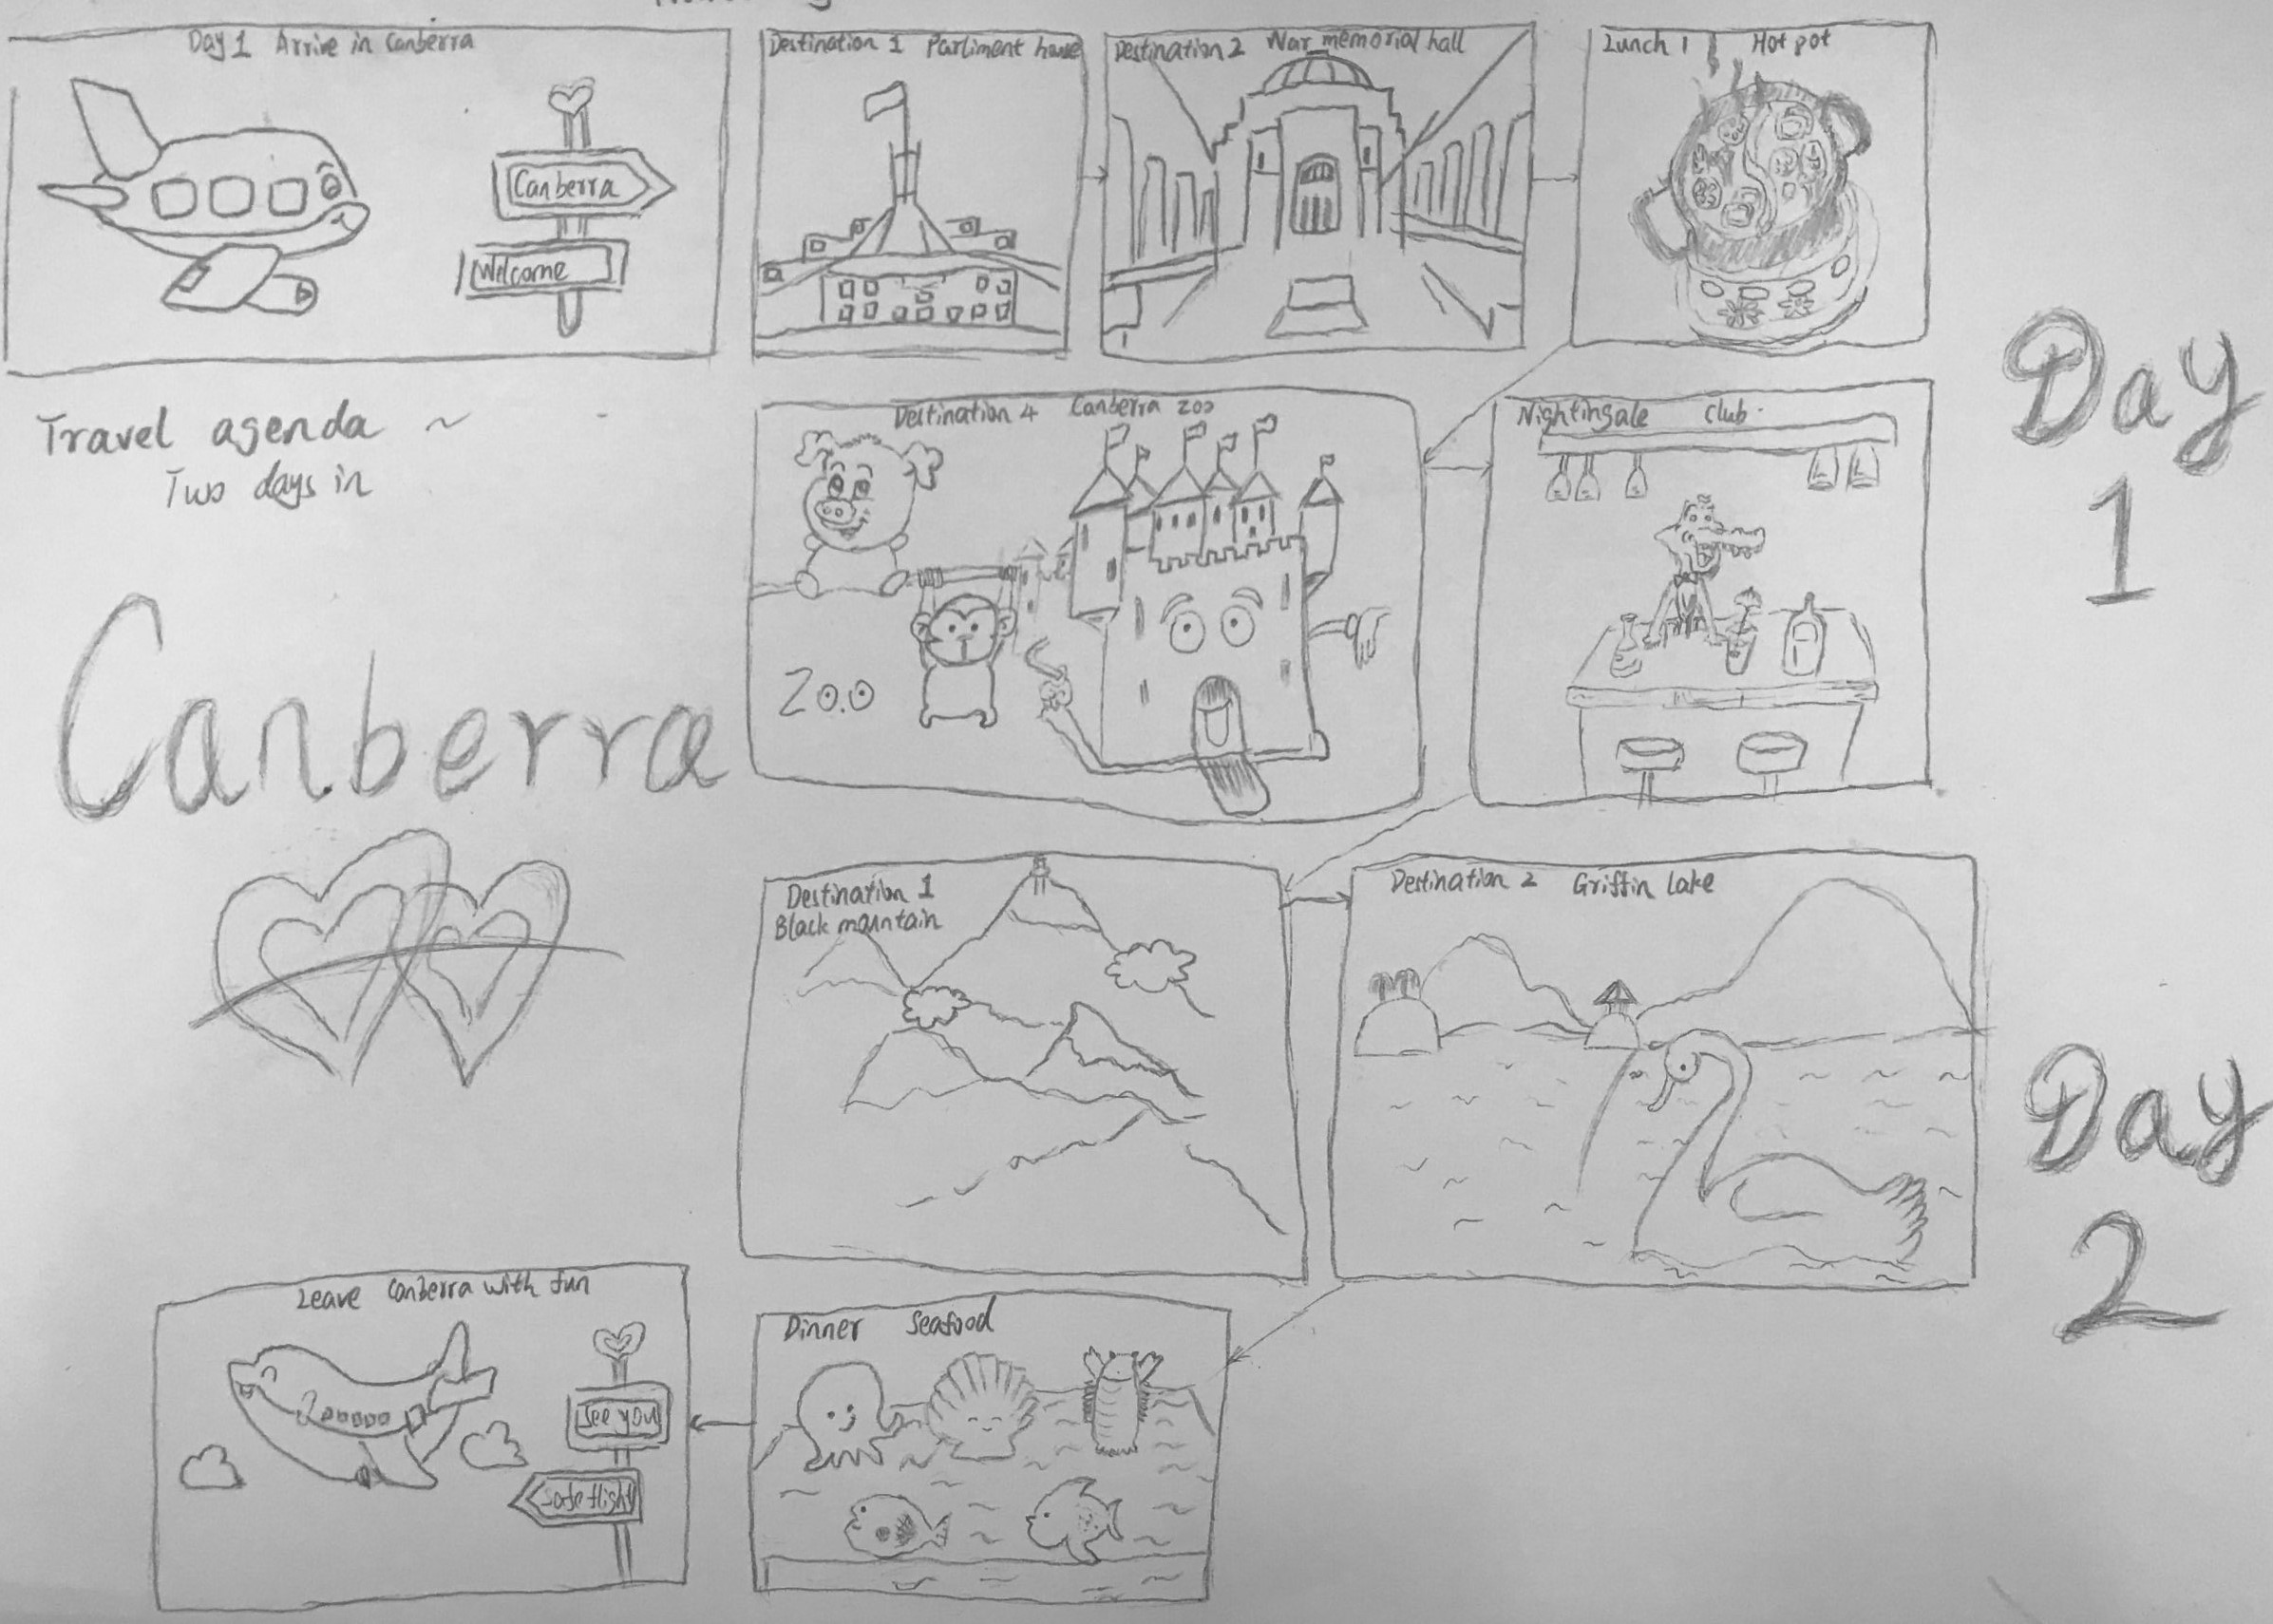 Day 1 Arrive in Canberra
Canberra
Welcome
Destination 1 Parliment house
Destination 2 War memorial hall
Lunch 1 Hot pot
Travel agenda ~
Two days in
Canberra
Destination 4 Canberra zoo
Zoo
Nightingale club
Day
1
Destination 1
Black mountain
Destination 2 Griffin lake
Day
2
Dinner Seafood
Leave Canberra with fun
See you
Safe flight